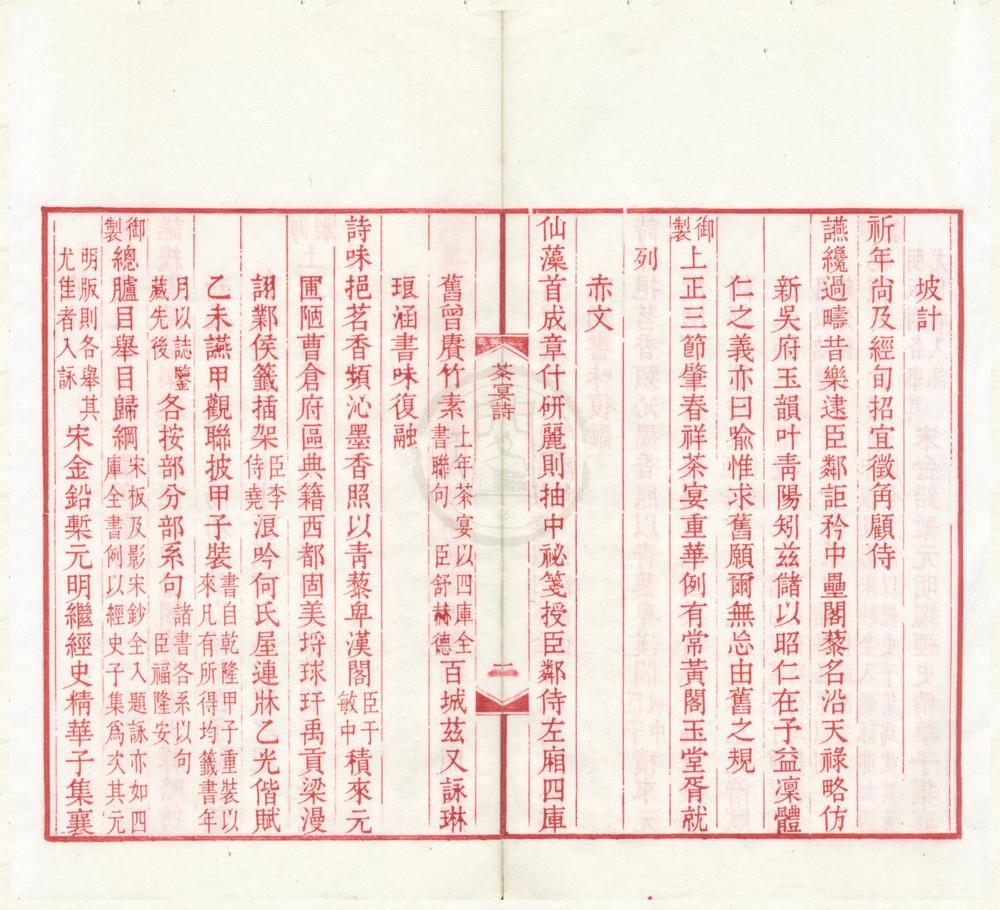 坡計
祈年尙及經旬招宜徵角顧侍
讌纔過疇昔樂逮臣鄰詎矜中壘閣藜名沿天祿略仿
新吳府玉韻叶靑陽矧茲儲以昭仁在予益凜體
仁之義亦曰喩惟求舊願爾無忘由舊之規
御製上正三節肇春祥茶宴重華例有常黃閣玉堂胥就
列
赤文
仙藻首成章什研麗則抽中祕箋授臣鄰侍左廂四庫
茶宴詩
二
舊曾賡竹素上年茶宴以四庫全書聯句 臣舒赫德百城茲又詠琳
琅涵書味復融
詩味挹茗香頻沁墨香照以靑藜卑漢閣臣于敏中積來元
圃陋曹倉府區典籍西都固美埒球玕禹貢梁漫
詡鄴侯籤插架臣李侍堯浪吟何氏屋連牀乙光偕賦
乙未讌甲觀聯披甲子裝書自乾隆甲子重裝以來凡有所得均籤書年
月以誌鑒藏先後各按部分部系句諸書各系以句 臣福隆安
御製總臚目舉目歸綱宋板及影宋鈔全入題詠亦如四庫全書例以經史子集爲次其元
明版則各舉其尤隹者入詠宋金鉛槧元明繼經史精華子集襄